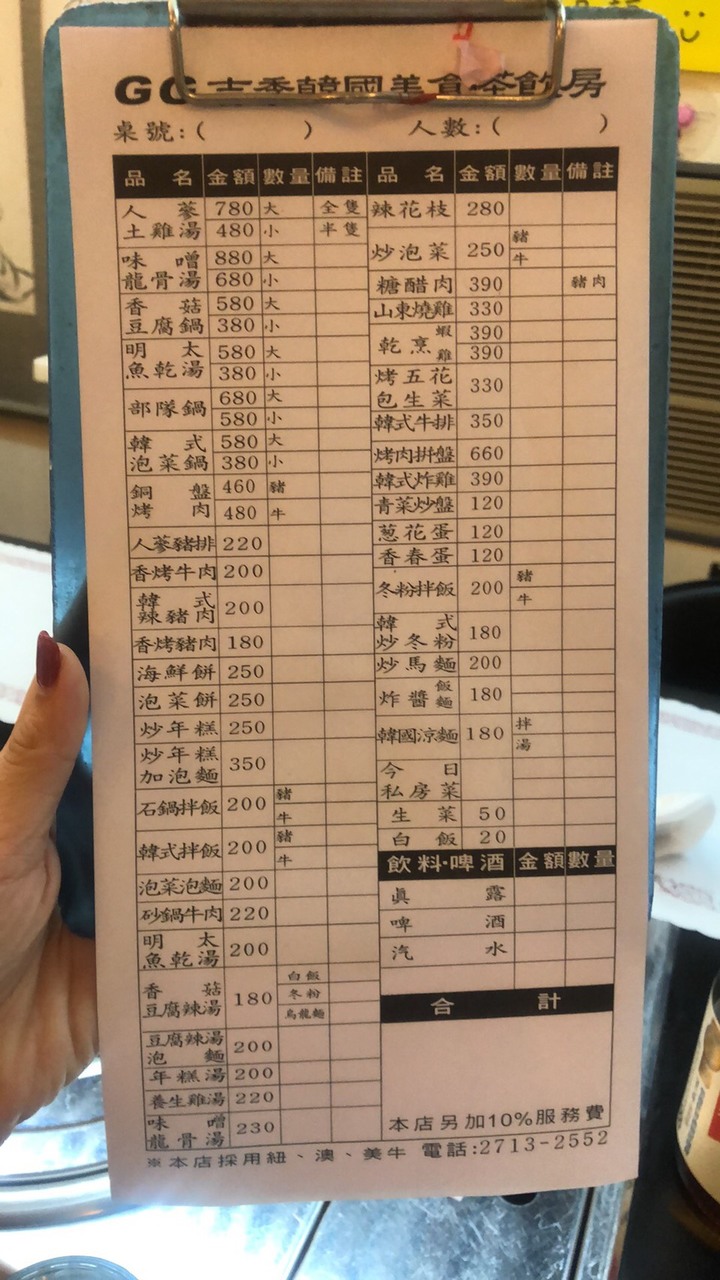 GG吉香韓國美食茶飲房
桌號:(　　　) 人數:(　　　)
品名 金額 數量 備註
人蔘土雞湯 780 大 全隻
480 小 半隻
味噌龍骨湯 880 大
680 小
香菇豆腐鍋 580 大
380 小
明太魚乾湯 580 大
380 小
部隊鍋 680 大
580 小
韓式泡菜鍋 580 大
380 小
銅盤烤肉 460 豬
480 牛
人蔘豬排 220
香烤牛肉 200
韓式辣豬肉 200
香烤豬肉 180
海鮮餅 250
泡菜餅 250
炒年糕 250
炒年糕加泡麵 350
石鍋拌飯 200 豬
牛
韓式拌飯 200 豬
牛
泡菜泡麵 200
砂鍋牛肉 220
明太魚乾湯 200
香菇豆腐辣湯 180 白飯
冬粉
烏龍麵
豆腐辣湯泡麵 200
年糕湯 200
養生雞湯 220
味噌龍骨湯 230
品名 金額 數量 備註
辣花枝 280
炒泡菜 250 豬
牛
糖醋肉 390 豬肉
山東燒雞 330
乾烹 蝦 390
雞 390
烤五花包生菜 330
韓式牛排 350
烤肉拼盤 660
韓式炸雞 390
青菜炒盤 120
葱花蛋 120
香春蛋 120
冬粉拌飯 200 豬
牛
韓式炒冬粉 180
炒馬麵 200
炸醬 飯 麵 180
韓國涼麵 180 拌
湯
今日私房菜
生菜 50
白飯 20
飲料·啤酒 金額 數量
眞露
啤酒
汽水
合計
本店另加10%服務費
※本店採用紐、澳、美牛 電話:2713-2552